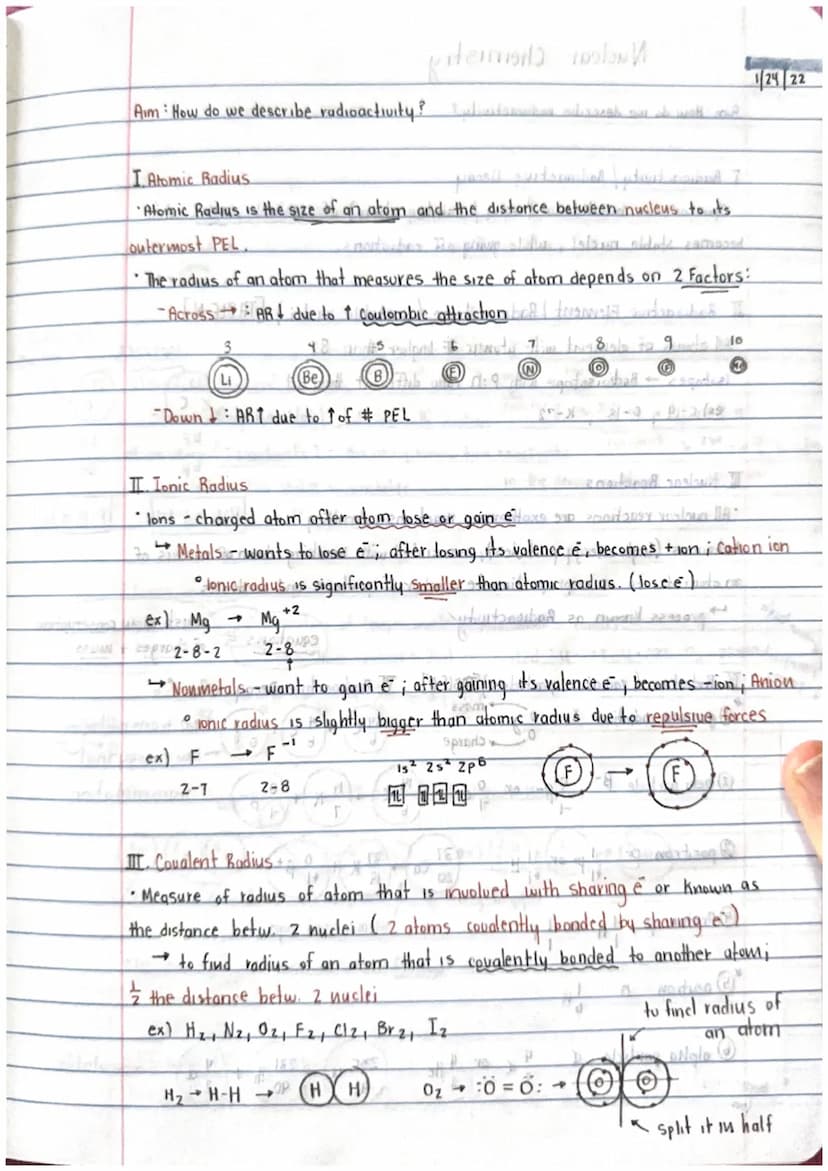 1/24/22
Aim: How do we describe radioactivity?
I. Atomic Radius
· Atomic Radius is the size of an atom and the distance between nucleus to its
outermost PEL.
· The radius of an atom that measures the size of atom depends on 2 Factors:
- Across → : AR↓ due to ↑ Coulombic attraction
3 4 5 6 7 8 9 10
Li Be B N O F Ne
- Down ↓ : AR↑ due to ↑ of # PEL
II. Ionic Radius
· Ions - charged atom after atom lose or gain e⁻
→ Metals - wants to lose e⁻; after losing its valence e⁻, becomes + ion; Cation ion
° ionic radius is significantly smaller than atomic radius. (lose e⁻)
ex) Mg → Mg⁺²
2-8-2 2-8
↑
↳ Nonmetals - want to gain e⁻; after gaining its valence e⁻, becomes -ion; Anion
° ionic radius is slightly bigger than atomic radius due to repulsive forces
ex) F → F⁻¹
1s² 2s² 2p⁶ F → F
2-7 2-8
III. Covalent Radius
· Measure of radius of atom that is involved with sharing e⁻ or known as
the distance betw. 2 nuclei (2 atoms covalently bonded by sharing e⁻)
→ to find radius of an atom that is covalently bonded to another atom;
½ the distance betw. 2 nuclei
to find radius of
an atom
ex) H₂, N₂, O₂, F₂, Cl₂, Br₂, I₂
H₂ → H-H → H H O₂ → :Ö = Ö: → O O
split it in half